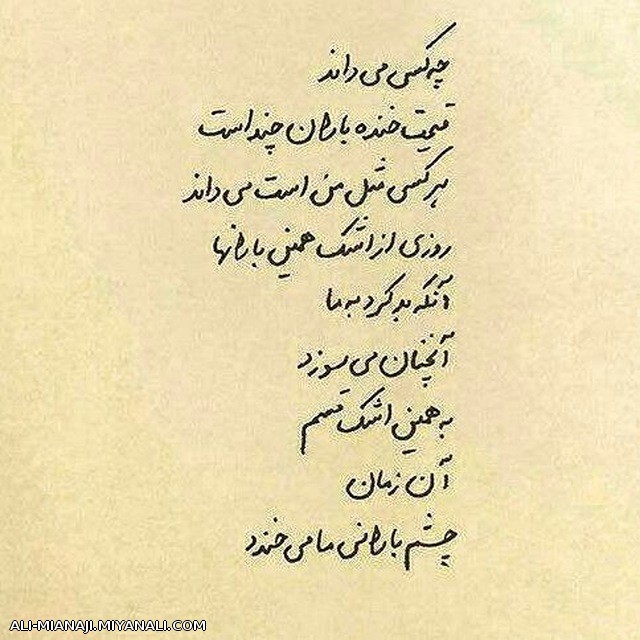 چه کسی می داند
قیمت خنده باران چند است
هر کسی مثل من است می داند
روزی از اشک همین بارانها
آنکه بد کرد به ما
آنچنان می سوزد
به همین اشک قسم
آن زمان
چشم بارانی ما می خندد
ALI-MIANAJI.MIYANALI.COM